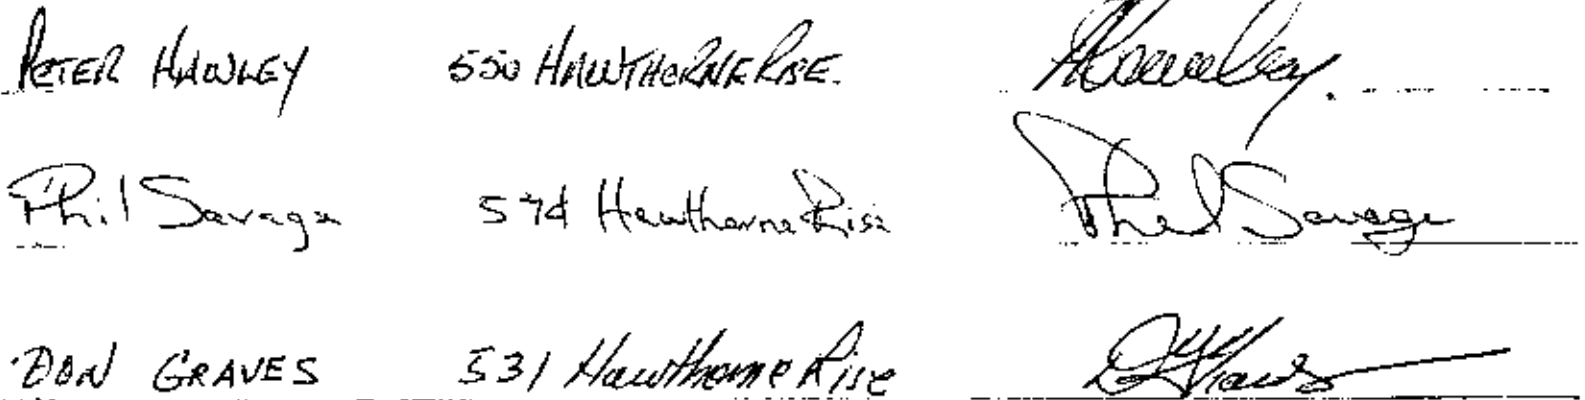 PETER HAWLEY 550 HAWTHORNE RISE. PHawley.
Phil Savage 574 Hawthorne Rise Phil Savage
DON GRAVES 531 Hawthorne Rise